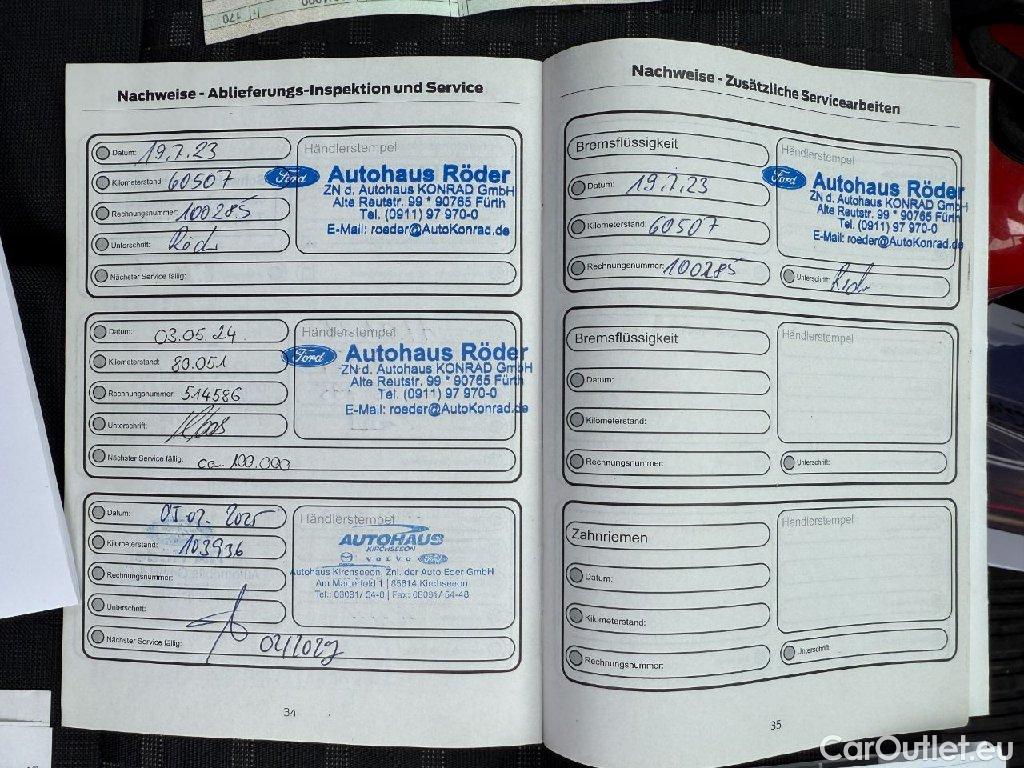 370
Nachweise - Ablieferungs-Inspektion und Service
Datum: 19.7.23
Kilometerstand: 60507
Rechnungsnummer: 100285
Unterschrift:
Nächster Service fällig:
Händlerstempel
Ford Autohaus Röder
ZN d. Autohaus KONRAD GmbH
Alte Reutstr. 99 * 90765 Fürth
Tel. (0911) 97 970-0
E-Mail: roeder@AutoKonrad.de
Datum: 03.05.24
Kilometerstand: 89.051
Rechnungsnummer: 514586
Unterschrift:
Nächster Service fällig: ca. 100.000
Händlerstempel
Ford Autohaus Röder
ZN d. Autohaus KONRAD GmbH
Alte Reutstr. 99 * 90765 Fürth
Tel. (0911) 97 970-0
E-Mail: roeder@AutoKonrad.de
Datum: 2025
Kilometerstand: 103936
Rechnungsnummer:
Unterschrift:
Nächster Service fällig:
Händlerstempel
AUTOHAUS
KIRCHSEEON
VOLVO Ford
Autohaus Kirchseeon, Znl. der Auto Eder GmbH
1 | 85614 Kirchseeon
Tel.: 08091/ 54-0 | Fax: 08091/ 54-48
34
Nachweise - Zusätzliche Servicearbeiten
Bremsflüssigkeit
Datum: 19.7.23
Kilometerstand: 60507
Rechnungsnummer: 100285
Händlerstempel
Ford Autohaus Röder
ZN d. Autohaus KONRAD GmbH
Alte Reutstr. 99 * 90765 Fürth
Tel. (0911) 97 970-0
E-Mail: roeder@AutoKonrad.de
Unterschrift:
Bremsflüssigkeit
Datum:
Kilometerstand:
Rechnungsnummer:
Händlerstempel
Unterschrift:
Zahnriemen
Datum:
Kilometerstand:
Rechnungsnummer:
Händlerstempel
Unterschrift:
35
CarOutlet.eu